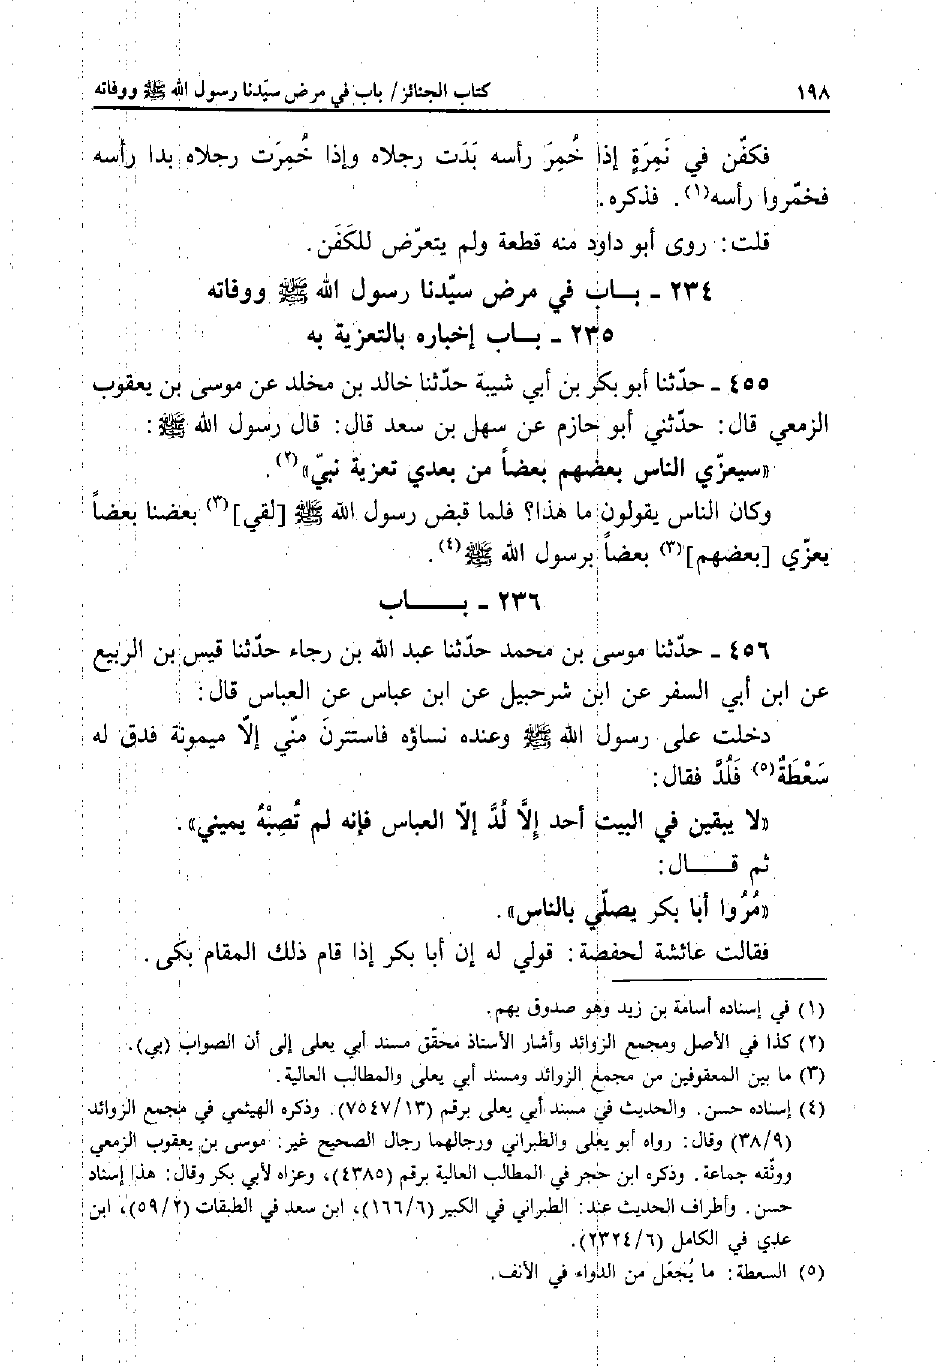 ١٩٨ كتاب الجنائز/ باب في مرض سيّدنا رسول الله ﷺ ووفاته
فكفّن في نَمِرَةٍ إذا خُمِرَ رأسه بَدَت رجلاه وإذا خُمِرَت رجلاه بدا رأسه
فخمّروا رأسه(١). فذكره.
قلت: روى أبو داود منه قطعة ولم يتعرّض للكَفَن.
٢٣٤ ـ بـاب في مرض سيّدنا رسول الله ﷺ ووفاته
٢٣٥ ـ بـاب إخباره بالتعزية به
٤٥٥ ـ حدّثنا أبو بكر بن أبي شيبة حدّثنا خالد بن مخلد عن موسى بن يعقوب
الزمعي قال: حدّثني أبو حازم عن سهل بن سعد قال: قال رسول الله ﷺ:
«سيعزّي الناس بعضهم بعضاً من بعدي تعزية نبيّ»(٢).
وكان الناس يقولون ما هذا؟ فلما قبض رسول الله ﷺ [لقي](٣) بعضنا بعضاً
يعزّي [بعضهم](٣) بعضاً برسول الله ﷺ(٤).
٢٣٦ ـ بـــاب
٤٥٦ ـ حدّثنا موسى بن محمد حدّثنا عبد الله بن رجاء حدّثنا قيس بن الربيع
عن ابن أبي السفر عن ابن شرحبيل عن ابن عباس عن العباس قال:
دخلت على رسول الله ﷺ وعنده نساؤه فاستترنَ منّي إلاّ ميمونة فدق له
سَعْطَةٌ(٥) فَلُدَّ فقال:
«لا يبقين في البيت أحد إِلاَّ لُدَّ إلاّ العباس فإنه لم تُصِبْهُ يميني».
ثم قـــال:
«مُرُوا أبا بكر يصلّي بالناس».
فقالت عائشة لحفصة: قولي له إن أبا بكر إذا قام ذلك المقام بكى.
(١) في إسناده أسامة بن زيد وهو صدوق يهم.
(٢) كذا في الأصل ومجمع الزوائد وأشار الأستاذ محقّق مسند أبي يعلى إلى أن الصواب (بي).
(٣) ما بين المعقوفين من مجمع الزوائد ومسند أبي يعلى والمطالب العالية.
(٤) إسناده حسن. والحديث في مسند أبي يعلى برقم (٧٥٤٧/١٣). وذكره الهيثمي في مجمع الزوائد
(٣٨/٩) وقال: رواه أبو يعلى والطبراني ورجالهما رجال الصحيح غير: موسى بن يعقوب الزمعي
ووثّقه جماعة. وذكره ابن حجر في المطالب العالية برقم (٤٣٨٥)، وعزاه لأبي بكر وقال: هذا إسناد
حسن. وأطراف الحديث عند: الطبراني في الكبير (١٦٦/٦)، ابن سعد في الطبقات (٥٩/٢)، ابن
عدي في الكامل (٢٣٢٤/٦).
(٥) السعطة: ما يُجعَل من الدواء في الأنف.